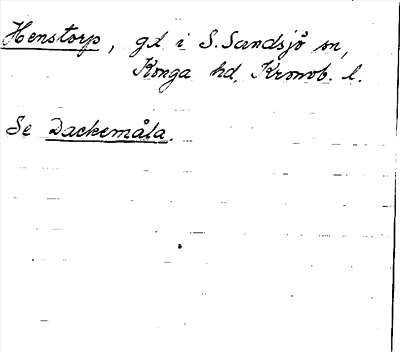 Henstorp, gd. i S. Sandsjö sn,
Konga hd, Kronob. l.
Se Dackemåla.